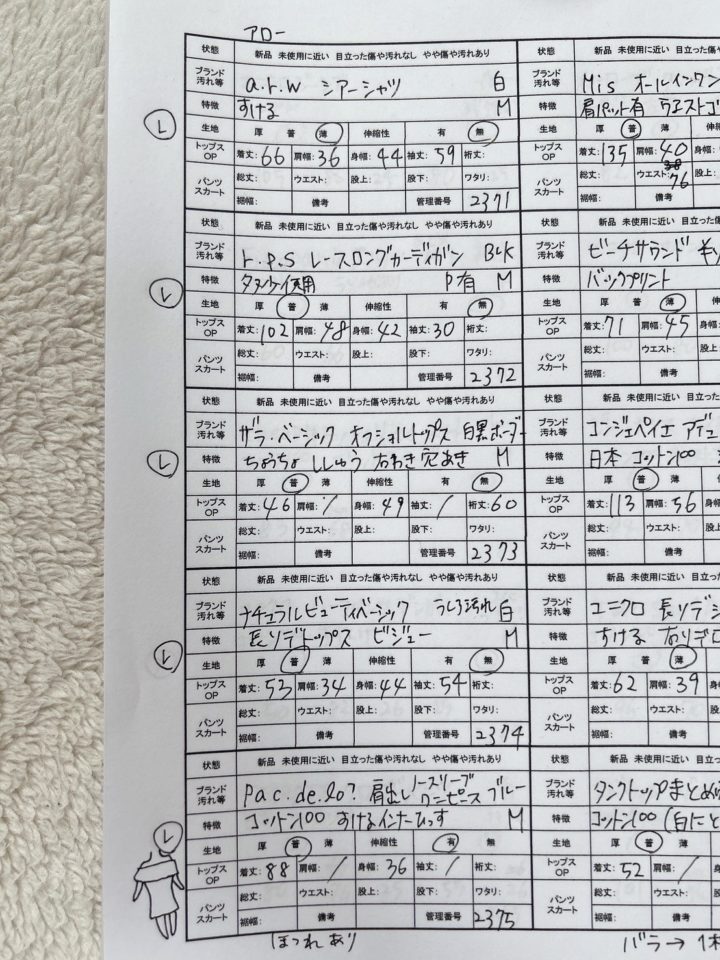 アロー
状態 新品 未使用に近い 目立った傷や汚れなし やや傷や汚れあり
ブランド 汚れ等 a.r.w シアーシャツ 白
特徴 すける M
L 生地 厚 普 薄 伸縮性 有 無
トップス OP 着丈:66 肩幅:36 身幅:44 袖丈:59 裄丈:
パンツ スカート 総丈: ウエスト: 股上: 股下: ワタリ:
裾幅: 備考 管理番号 2371
状態 新品 未使用に近い 目立った傷や汚れなし やや傷や汚れあり
ブランド 汚れ等 r.p.s レースロングカーディガン BLK
特徴 使用 P有 M
L 生地 厚 普 薄 伸縮性 有 無
トップス OP 着丈:102 肩幅:48 身幅:42 袖丈:30 裄丈:
パンツ スカート 総丈: ウエスト: 股上: 股下: ワタリ:
裾幅: 備考 管理番号 2372
状態 新品 未使用に近い 目立った傷や汚れなし やや傷や汚れあり
ブランド 汚れ等 ザラ・ベーシック オフショルトップス 白黒ボーダー
特徴 ちょうちょ ししゅう 右わき穴あき M
L 生地 厚 普 薄 伸縮性 有 無
トップス OP 着丈:46 肩幅:/ 身幅:49 袖丈:/ 裄丈:60
パンツ スカート 総丈: ウエスト: 股上: 股下: ワタリ:
裾幅: 備考 管理番号 2373
状態 新品 未使用に近い 目立った傷や汚れなし やや傷や汚れあり
ブランド 汚れ等 ナチュラルビューティベーシック うしろ汚れ 白
特徴 長ソデトップス ビジュー M
L 生地 厚 普 薄 伸縮性 有 無
トップス OP 着丈:53 肩幅:34 身幅:44 袖丈:54 裄丈:
パンツ スカート 総丈: ウエスト: 股上: 股下: ワタリ:
裾幅: 備考 管理番号 2374
状態 新品 未使用に近い 目立った傷や汚れなし やや傷や汚れあり
ブランド 汚れ等 pac.de.lo? 肩出しノースリーブワンピース ブルー
特徴 コットン100 すけるインナーひっす M
L 生地 厚 普 薄 伸縮性 有 無
トップス OP 着丈:88 肩幅:/ 身幅:36 袖丈:/ 裄丈:
パンツ スカート 総丈: ウエスト: 股上: 股下: ワタリ:
裾幅: 備考 管理番号 2375
ほつれあり
状態 新品 未使用に近い 目立っ
ブランド 汚れ等 Mis オールインワン
特徴 肩パット有 ウエストゴ
生地 厚 普 薄 伸
トップス OP 着丈:135 肩幅:40 身幅
パンツ スカート 総丈: ウエスト:76 股上
裾幅: 備考
状態 新品 未使用に近い 目立っ
ブランド 汚れ等 ビーチサウンド
特徴 バックプリント
生地 厚 普 薄 伸
トップス OP 着丈:71 肩幅:45 身幅
パンツ スカート 総丈: ウエスト: 股上
裾幅: 備考
状態 新品 未使用に近い 目立った
ブランド 汚れ等 コンジェペイエ アデュ
特徴 日本 コットン100
生地 厚 普 薄 伸
トップス OP 着丈:113 肩幅:56 身幅
パンツ スカート 総丈: ウエスト: 股上:
裾幅: 備考
状態 新品 未使用に近い 目立った
ブランド 汚れ等 ユニクロ 長ソデシ
特徴 すける
生地 厚 普 薄 伸
トップス OP 着丈:62 肩幅:39 身幅
パンツ スカート 総丈: ウエスト: 股上:
裾幅: 備考
状態 新品 未使用に近い 目立った
ブランド 汚れ等 タンクトップまとめ
特徴 コットン100(白にと
生地 厚 普 薄 伸
トップス OP 着丈:52 肩幅:/ 身幅
パンツ スカート 総丈: ウエスト: 股上:
裾幅: 備考
バラ→1枚